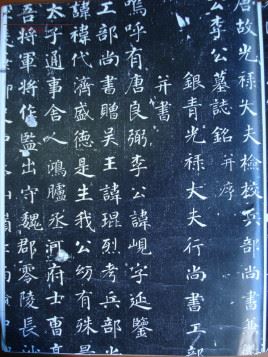 唐故光祿大夫檢校兵部尚書兼
公李公墓誌銘并序
銀青光祿大夫行尚書工部
并書
嗚呼有唐良弼李公諱峴字延鑒
工部尚書贈吳王諱琨烈考兵部尚
諱禕代濟盛德是生我公幼有殊量
太子通事舍人鴻臚丞河府士曹高
吾將軍將作監出守魏郡零陵長沙